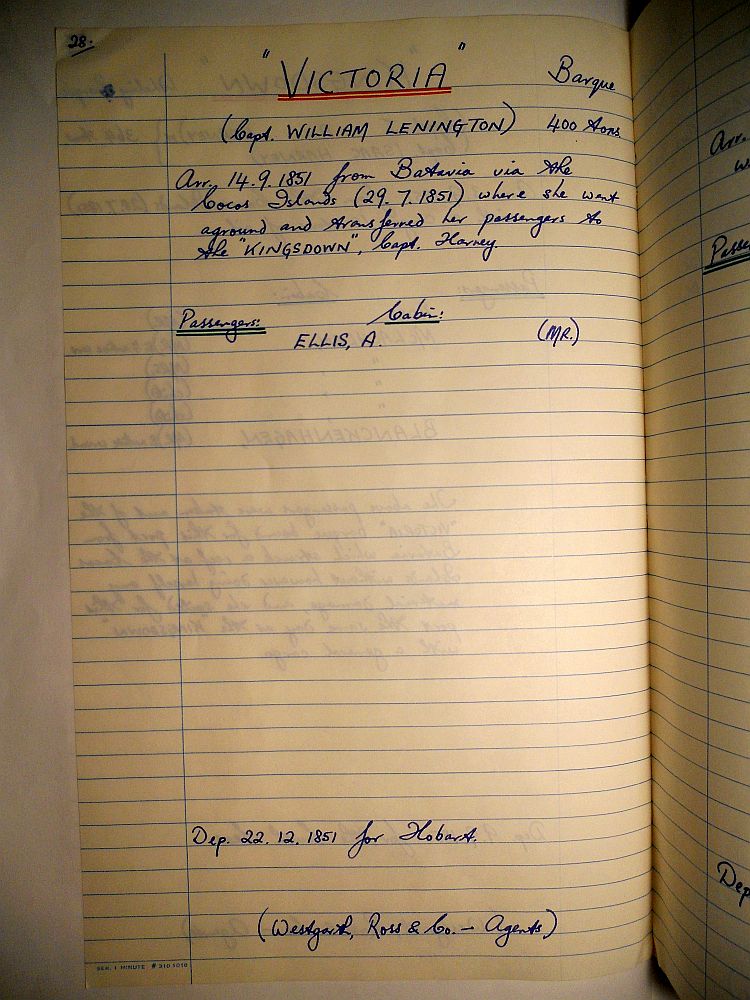 28.
"VICTORIA" Barque
(Capt. WILLIAM LENINGTON) 400 tons
Arr. 14.9.1851 from Batavia via the
Cocos Islands (29.7.1851) where she went
aground and transferred her passengers to
the "KINGSDOWN", Capt. Harvey
Passengers: Cabin:
ELLIS, A. (MR.)
Dep. 22.12.1851 for Hobart.
(Westgarth, Ross & Co. – Agents)
SER. 1 MINUTE # 310 5010
Arr.
Passe
Dep